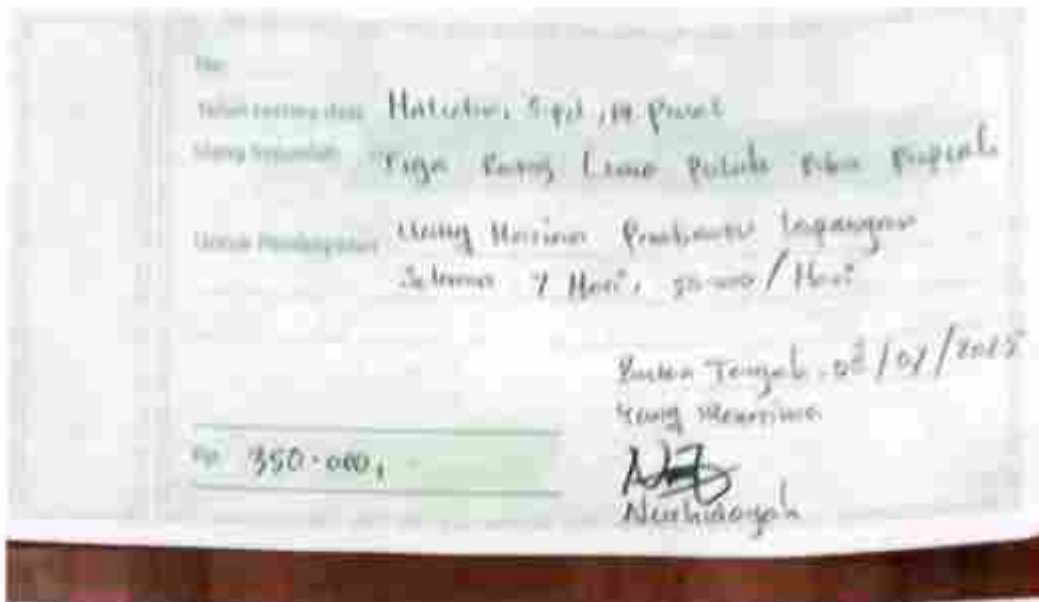 No
Telah terima dari Haludin, S.Pd, M.Pwal
Uang Sejumlah Tiga Ratus Lima Puluh Ribu Rupiah
Untuk Pembayaran Uang Harian Pembantu Lapangan
Selama 7 Hari, 50.000/Hari
Buton Tengah, /07/2025
Yang Menerima
Rp. 350.000,
Nurhidayah